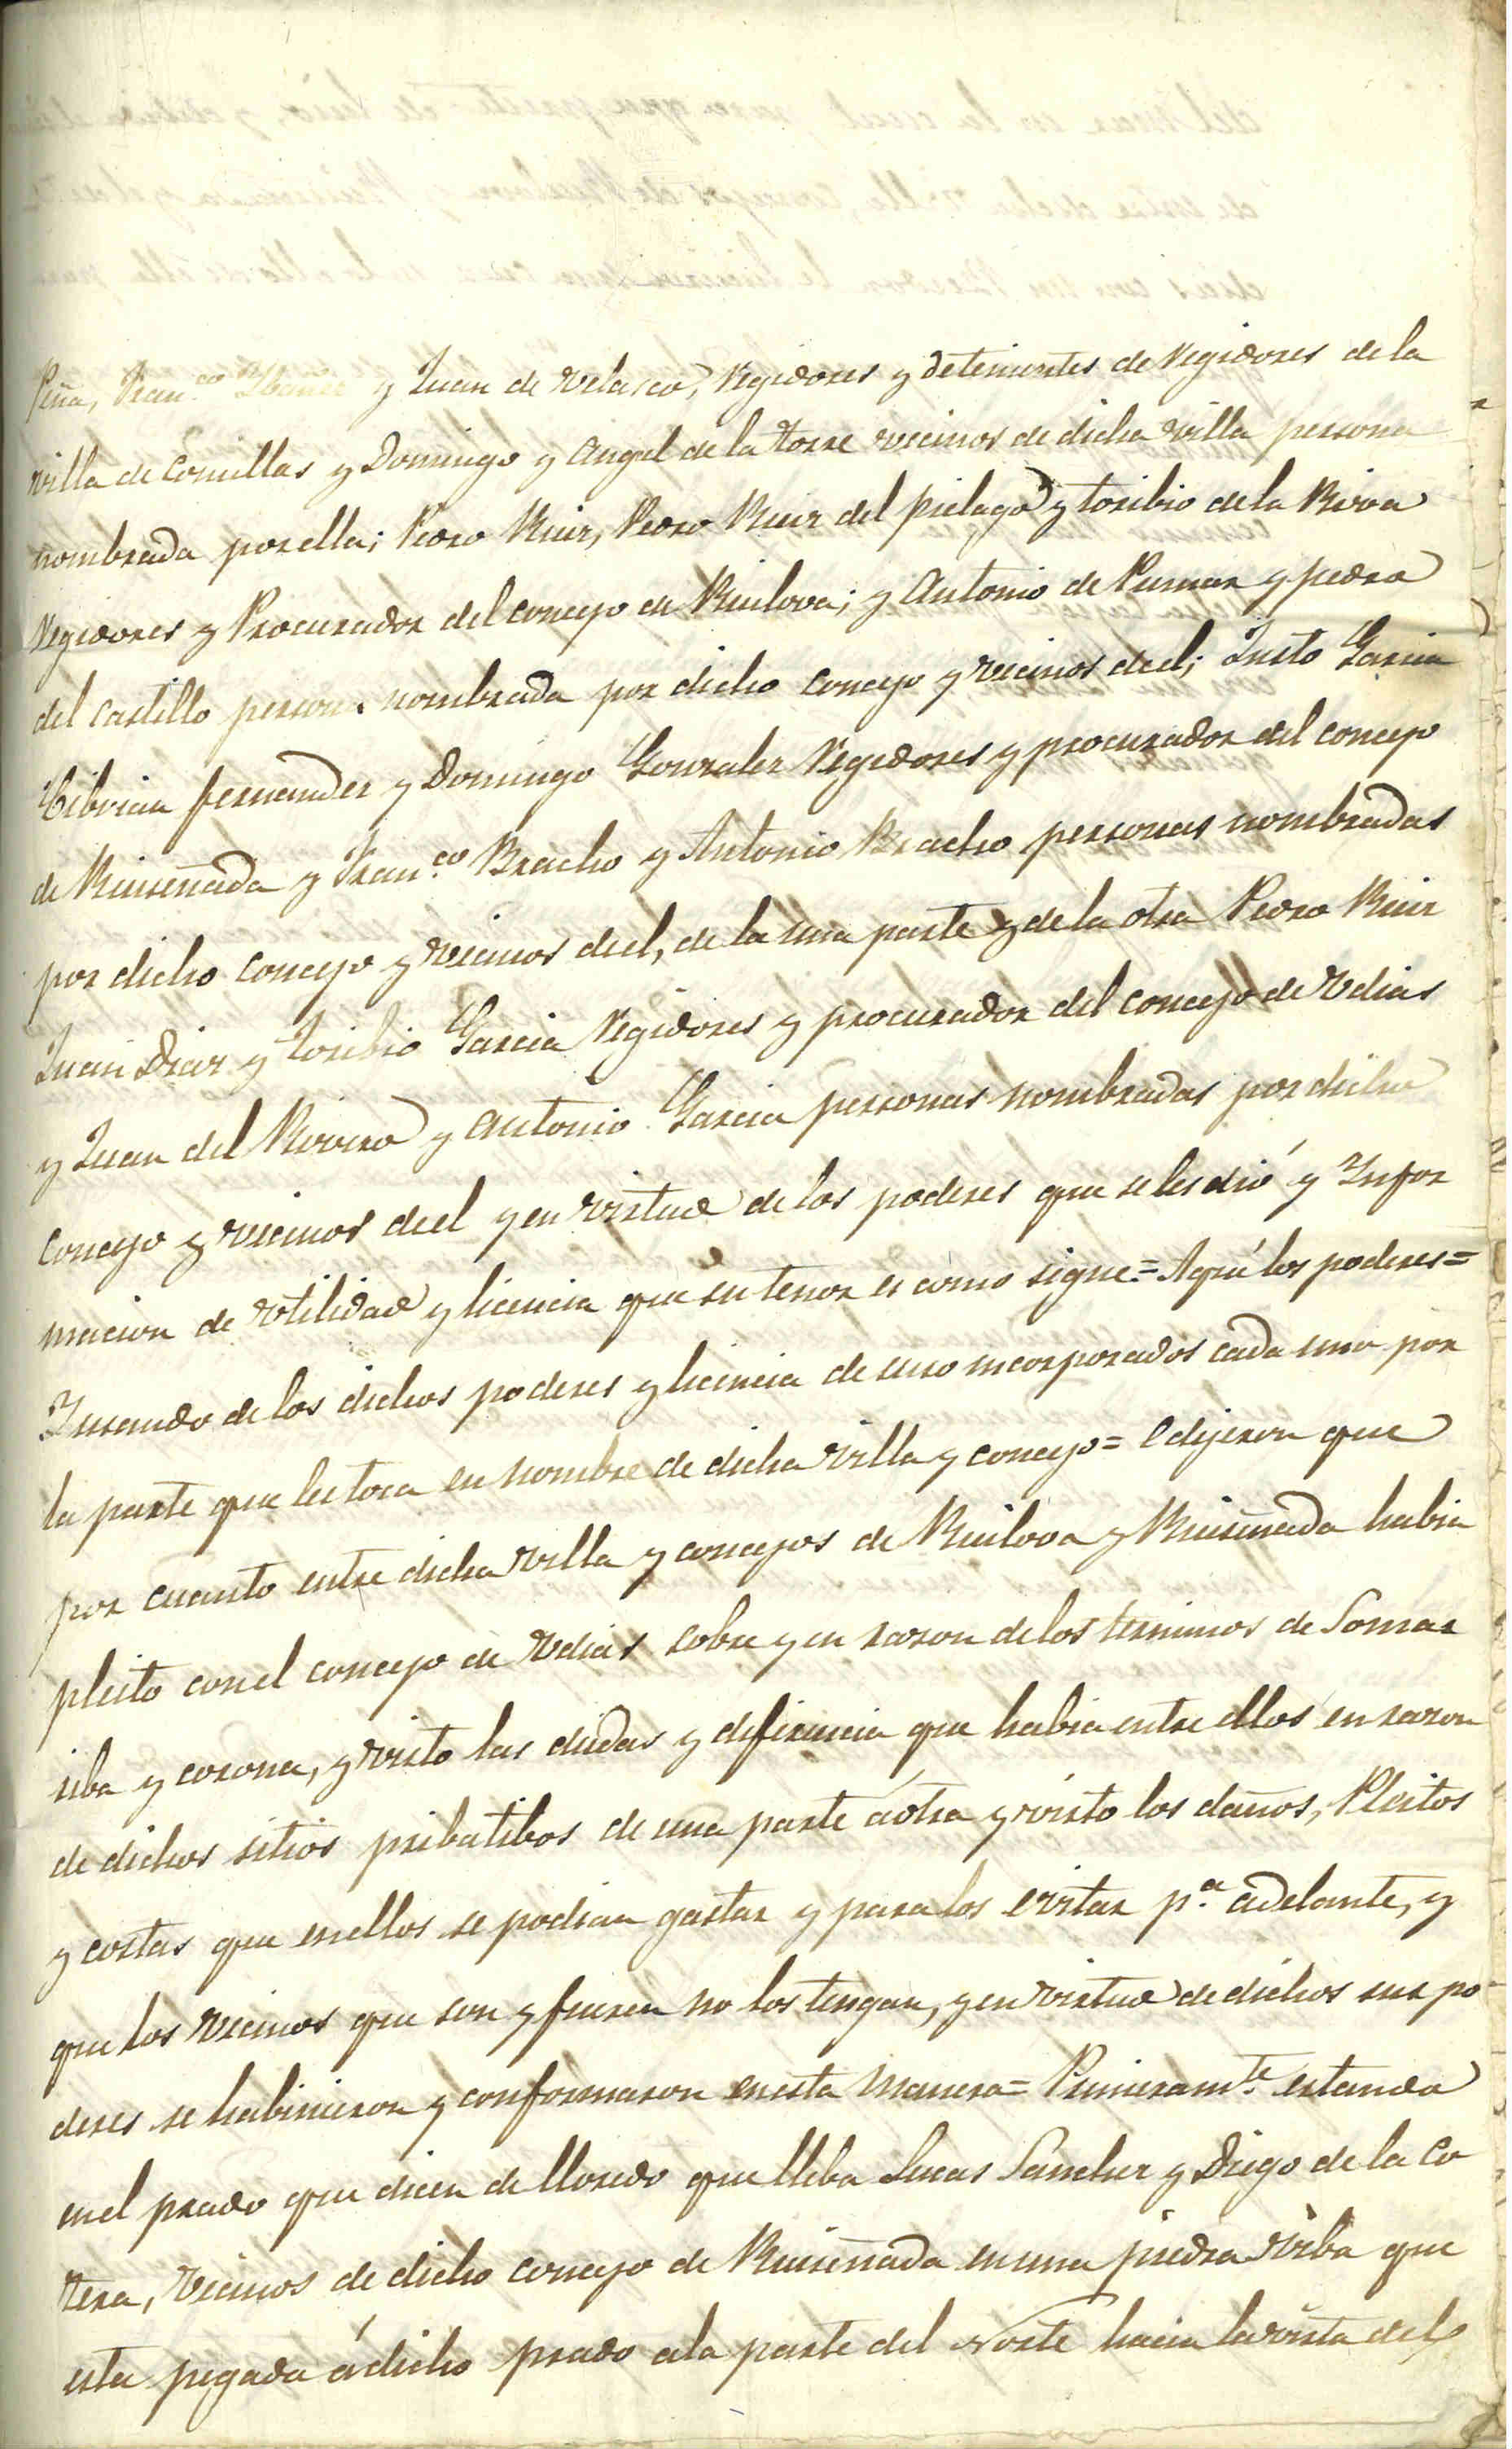 Peña, Fran.co Ibañez y Juan de Velasco, Regidores y detenientes de Regidores de la
villa de Comillas y Domingo y Angel de la torre vecinos de dicha villa persona
nombrada por ella; Pedro Ruiz, Pedro Ruiz del pielago y toribio de la Riva
Regidores y Procurador del concejo de Ruilova; y Antonio de Pumar y pedro
del castillo persona nombrada por dicho concejo y vecinos deel; Justo Garcia
Cibrian fernandez y Domingo Gonzalez Regidores y procurador del concejo
de Ruiseñada y Fran.co Bracho y Antonio Bracho personas nombradas
por dicho concejo y vecinos deel, de la una parte y de la otra Pedro Ruiz
Juan Diaz y Toribio Garcia Regidores y procurador del concejo de Vdias
y Juan del Rivero y Antonio Garcia personas nombradas por dicho
concejo y vecinos deel y en virtud de los poderes que se les dió y Infor
macion de vtilidad y licencia que su tenor es como sigue = Aqui los poderes =
Jusando de los dichos poderes y licencia de suso incorporados cada uno por
la parte que les toca en nombre de dicha villa y concejo = E dijeron que
por cuanto entre dicha villa y concejos de Ruilova y Ruiseñada habia
pleito con el concejo de Vdias sobre y en razon de los terminos de Somar
riba y corona, y visto las dudas y diferencia que habia entre ellos en razon
de dichos sitios pribatibos de una parte á otra y visto los daños, Pleitos
y costas que en ellos se podian gastar y para los evitar p.a adelante, y
que los vecinos que son y fueren no los tengan, y en virtud de dichos sus po
deres se habinieron y conformaron en esta manera = Primeramte. estando
en el prado que dicen de lloredo que lleba Lucas Sanchez y Diego de la Co
tera, vecinos de dicho concejo de Ruiseñada en una piedra viba que
esta pegada á dicho prado a la parte del Norte hacia la vista del